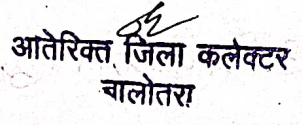 आतेरिक्त जिला कलेक्टर
बालोतरा